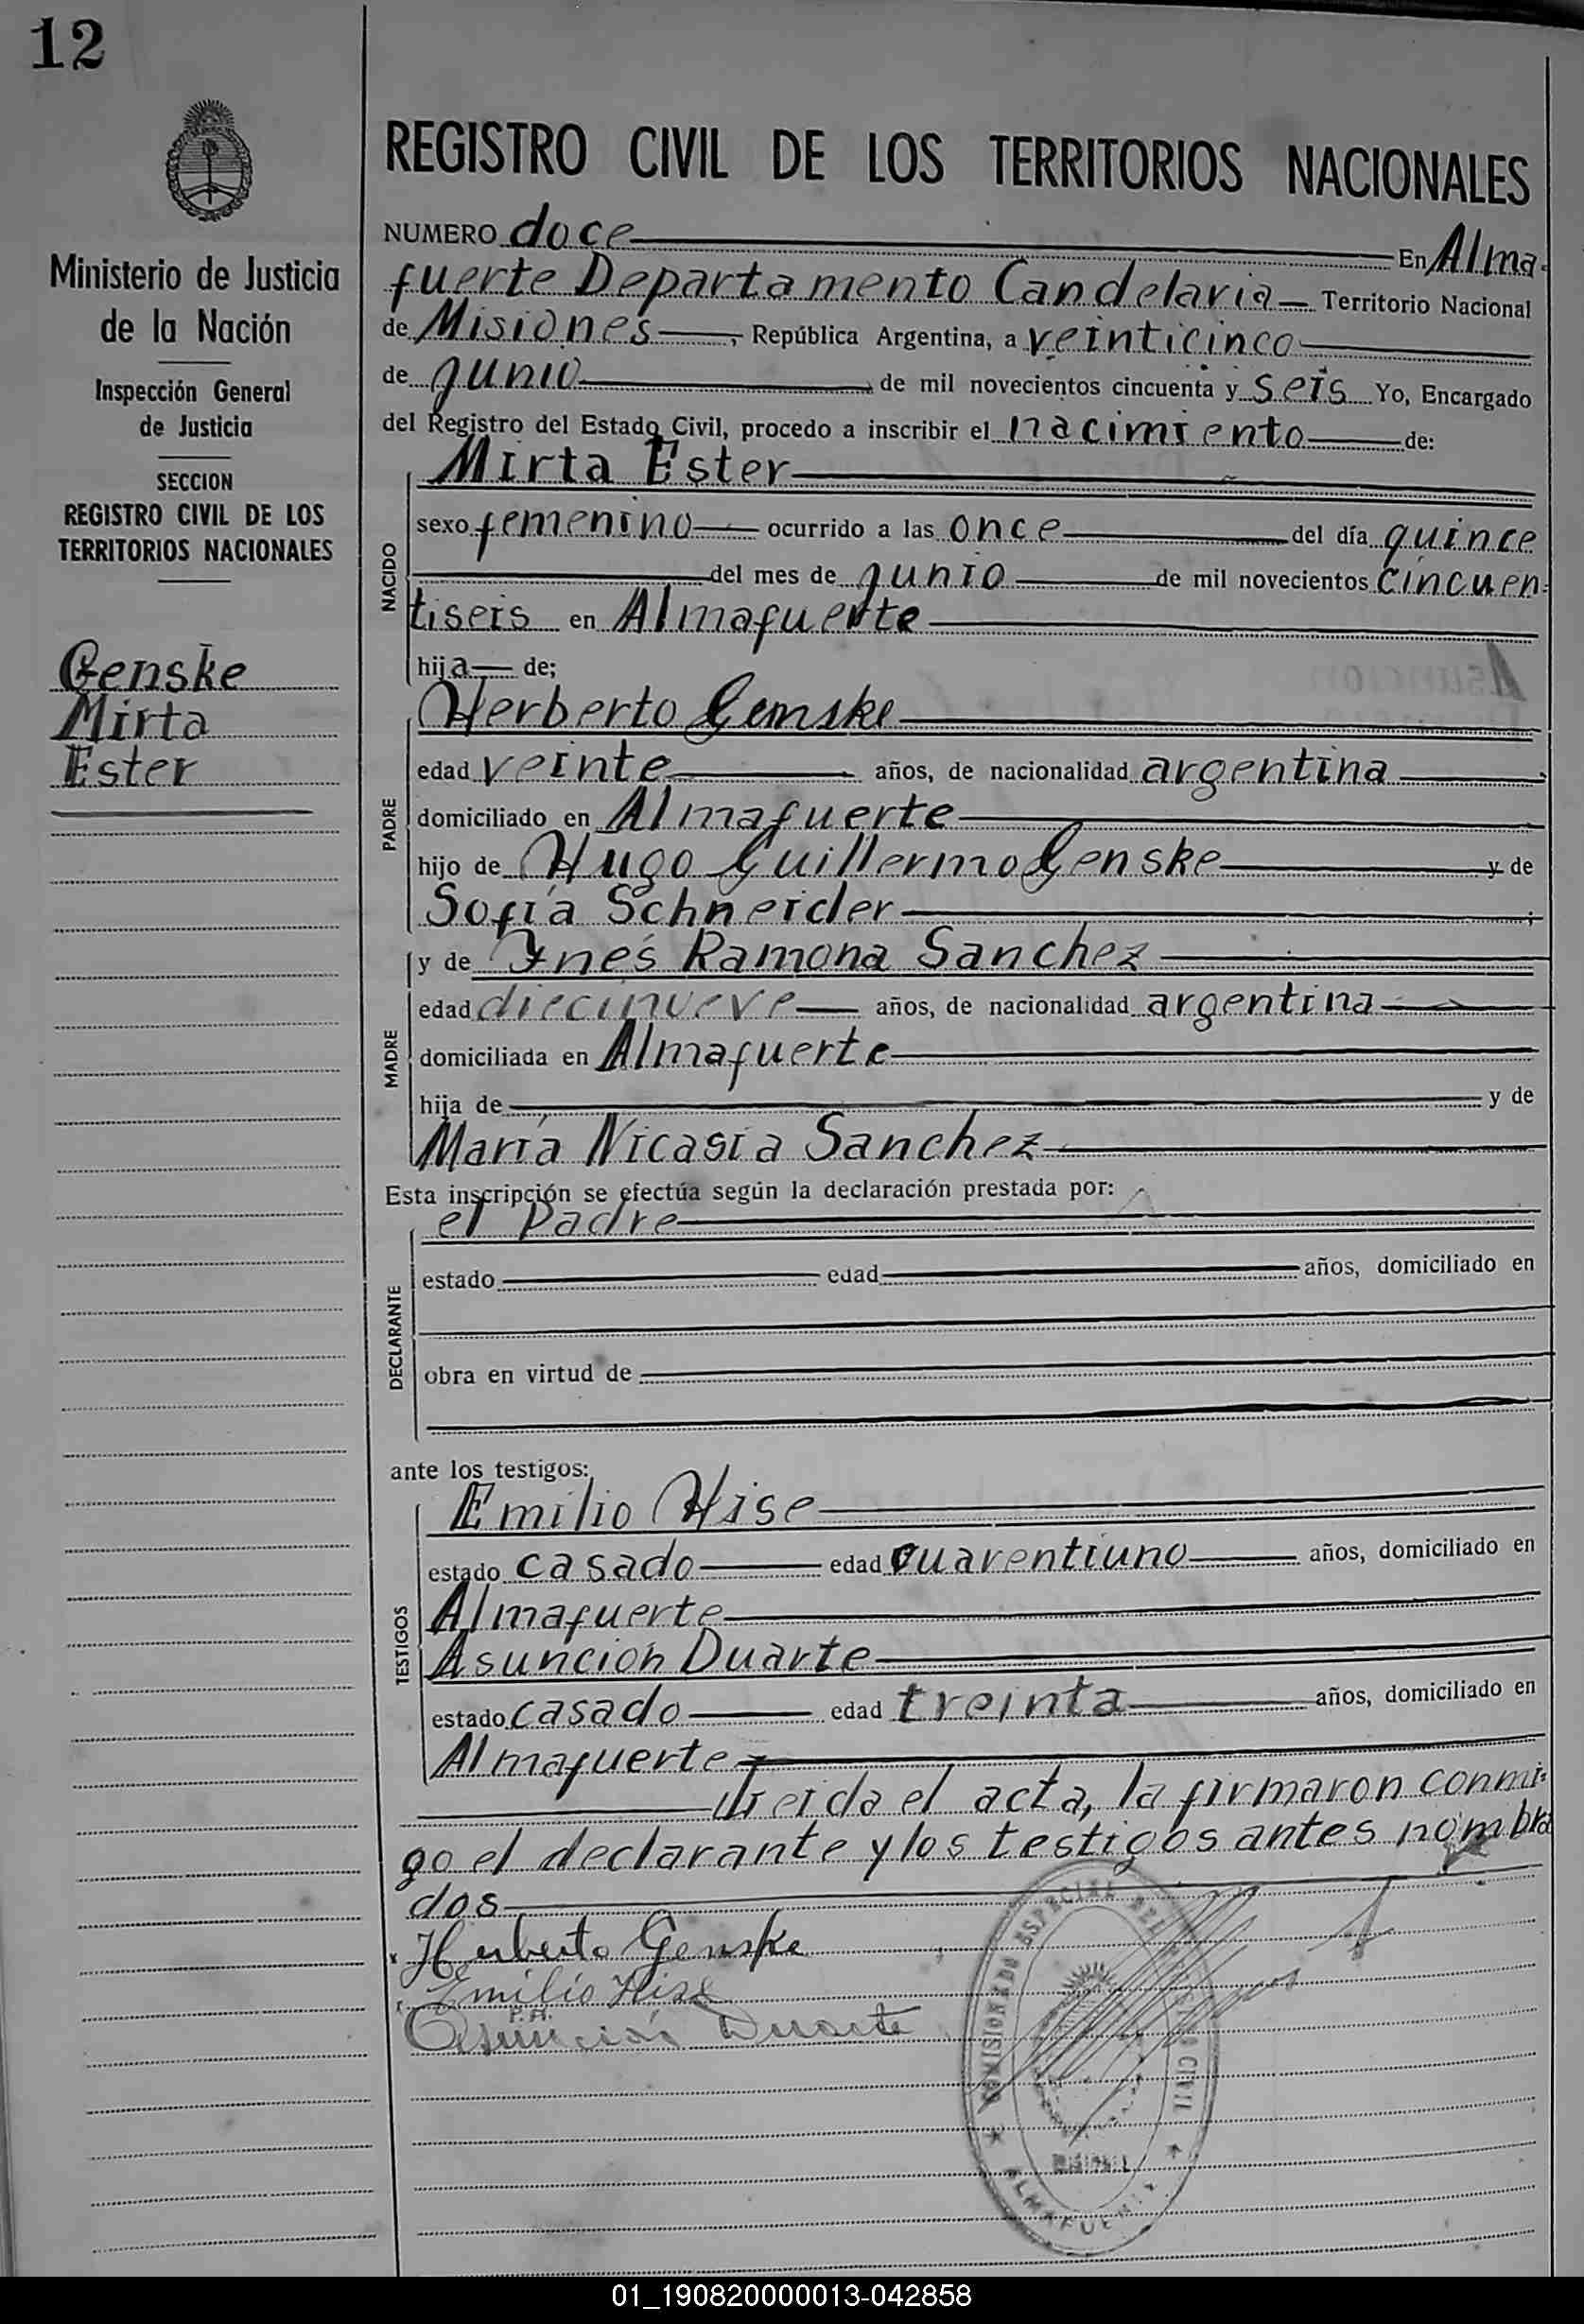 12
Ministerio de Justicia
de la Nación
Inspección General
de Justicia
SECCION
REGISTRO CIVIL DE LOS
TERRITORIOS NACIONALES
Genske
Mirta
Ester
REGISTRO CIVIL DE LOS TERRITORIOS NACIONALES
NUMERO doce En Alma-
fuerte Departamento Candelaria Territorio Nacional
de Misiones, República Argentina, a veinticinco
de junio de mil novecientos cincuenta y seis Yo, Encargado
del Registro del Estado Civil, procedo a inscribir el nacimiento de:
NACIDO
Mirta Ester
sexo femenino ocurrido a las once del día quince
del mes de junio de mil novecientos cincuen-
tiseis en Almafuerte
hija de;
PADRE
Herberto Genske
edad veinte años, de nacionalidad argentina
domiciliado en Almafuerte
hijo de Hugo Guillermo Genske y de
Sofía Schneider;
MADRE
y de Ynés Ramona Sanchez
edad diecinueve años, de nacionalidad argentina
domiciliada en Almafuerte
hija de y de
María Nicasia Sanchez
Esta inscripción se efectúa según la declaración prestada por:
DECLARANTE
el Padre
estado edad años, domiciliado en
obra en virtud de
ante los testigos:
TESTIGOS
Emilio Hise
estado casado edad cuarentiuno años, domiciliado en
Almafuerte
Asunción Duarte
estado casado edad treinta años, domiciliado en
Almafuerte
Leida el acta, la firmaron conmi-
go el declarante y los testigos antes nombra
dos
Herberto Genske
Emilio Hise
Asunción Duarte
COMISIONADO ESPECIAL DEL CIVIL
ALMAFUERTE
01_190820000013-042858